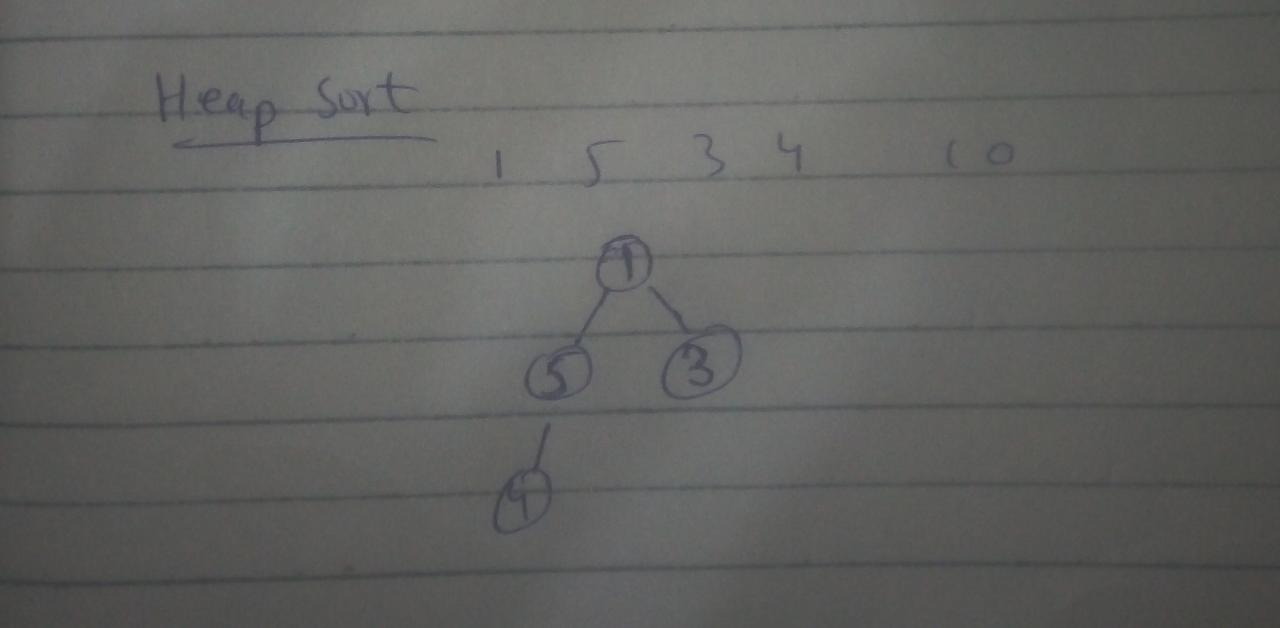 Heap Sort
1 5 3 4 10
1
5 3
4